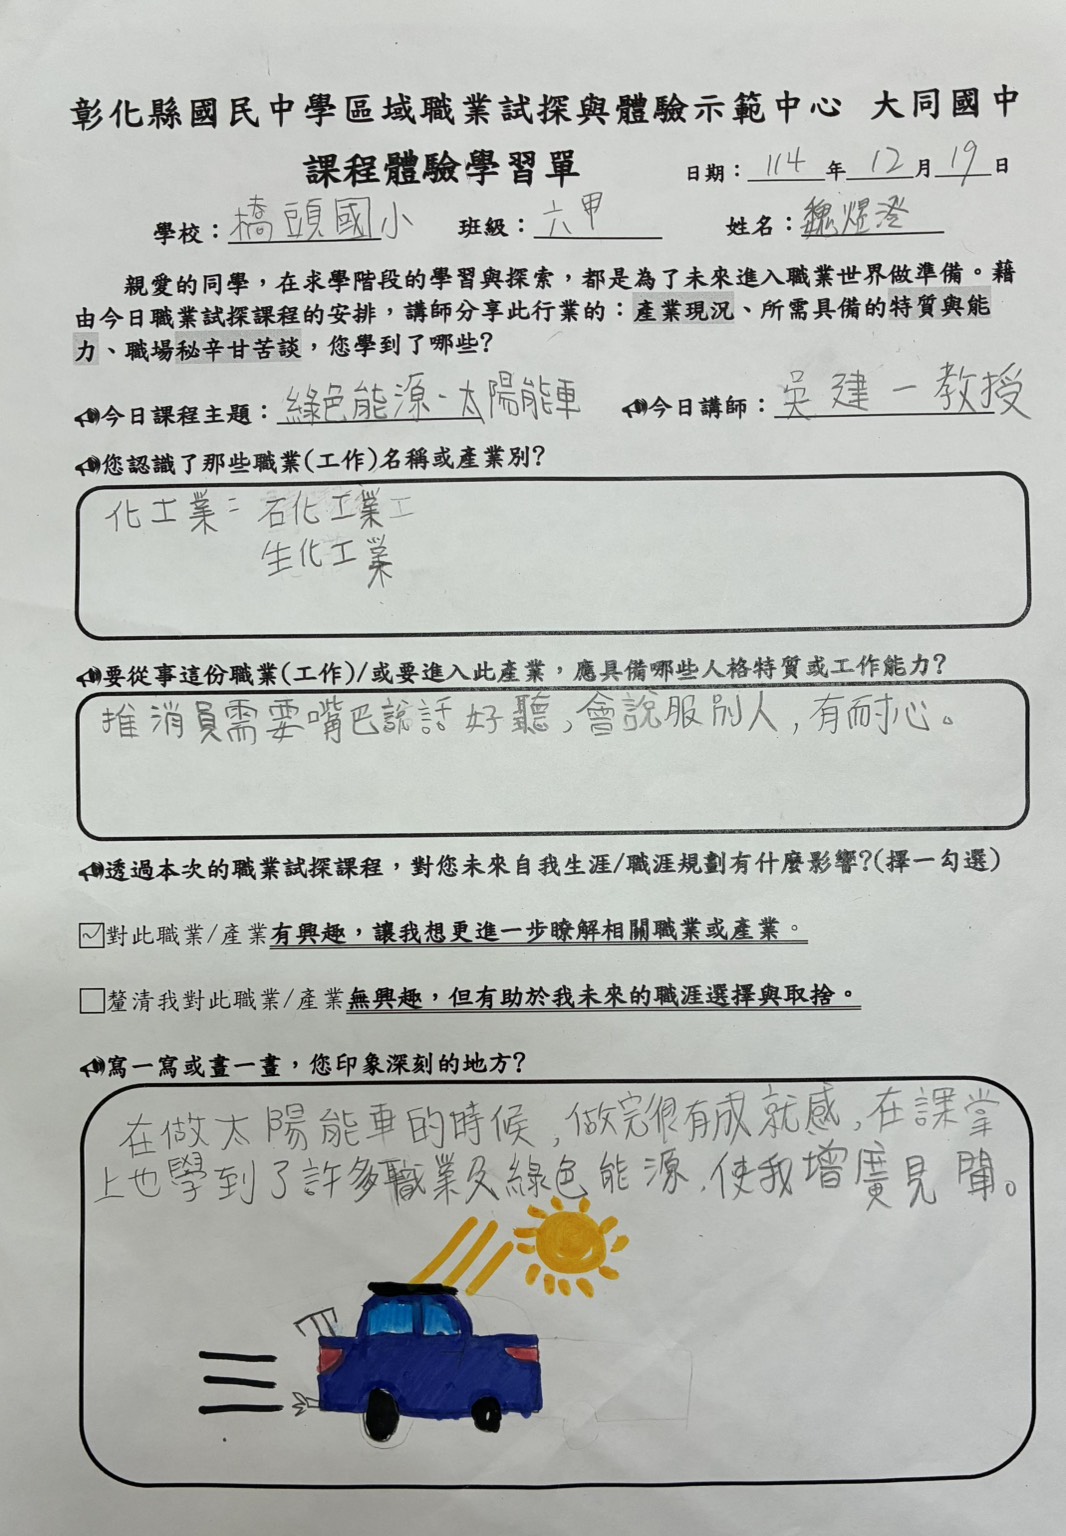 彰化縣國民中學區域職業試探與體驗示範中心 大同國中
課程體驗學習單 日期：114年12月19日
學校：橋頭國小 班級：六甲 姓名：魏煜澄
親愛的同學，在求學階段的學習與探索，都是為了未來進入職業世界做準備。藉
由今日職業試探課程的安排，講師分享此行業的：產業現況、所需具備的特質與能
力、職場秘辛甘苦談，您學到了哪些?
今日課程主題：綠色能源-太陽能車 今日講師：吳建一教授
您認識了那些職業(工作)名稱或產業別?
化工業= 石化工業工
生化工業
要從事這份職業(工作)/或要進入此產業，應具備哪些人格特質或工作能力?
推消員需要嘴巴說話好聽，會說服別人，有耐心。
透過本次的職業試探課程，對您未來自我生涯/職涯規劃有什麼影響?(擇一勾選)
對此職業/產業有興趣，讓我想更進一步瞭解相關職業或產業。
釐清我對此職業/產業無興趣，但有助於我未來的職涯選擇與取捨。
寫一寫或畫一畫，您印象深刻的地方?
在做太陽能車的時候，做完很有成就感，在課堂
上也學到了許多職業及綠色能源，使我增廣見聞。